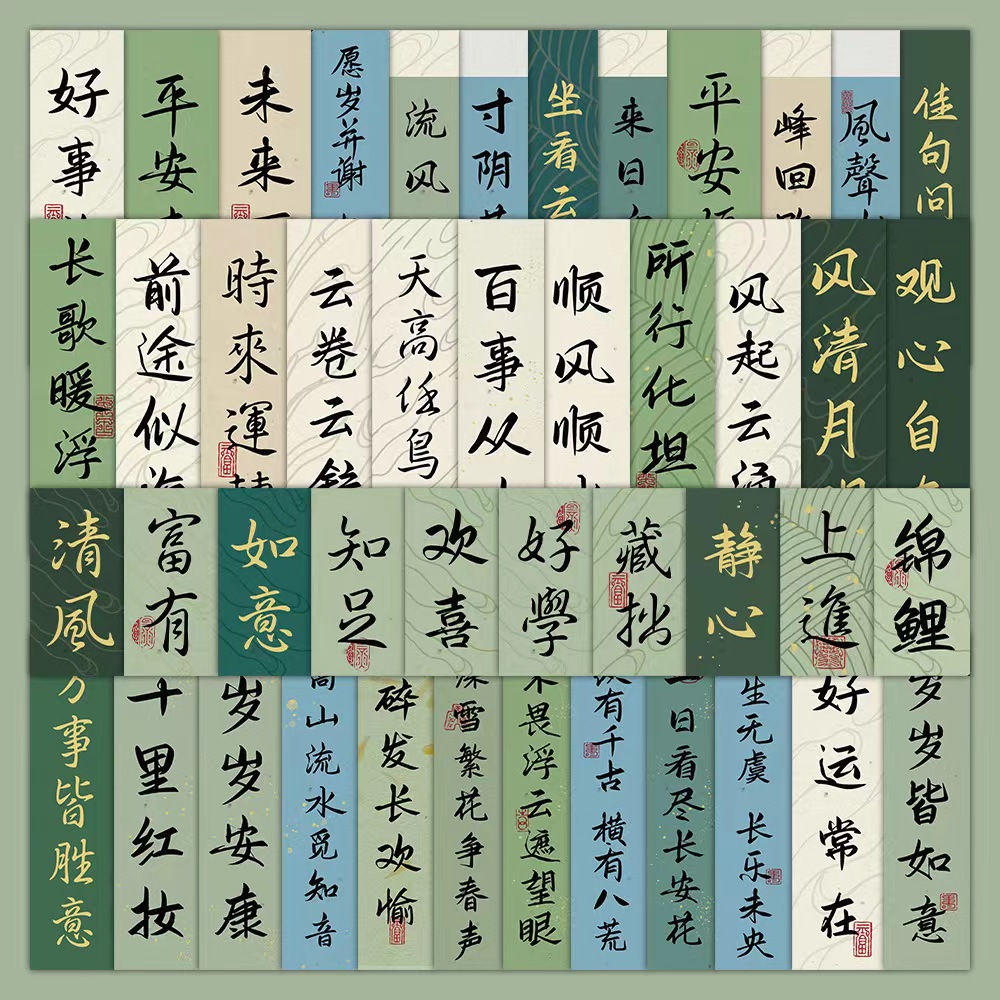 好事
平安
未来
愿岁并谢
流风
寸阴
坐看云
来日
平安
峰回
風聲
佳句问
长歌暖浮
前途似海
時來運
云卷云
天高任鸟
百事从
顺风顺
所行化坦
风起云涌
风清月
观心自
清風
富有
如意
知足
欢喜
好學
藏拙
静心
上進
锦鲤
万事皆胜意
十里红妆
岁岁安康
高山流水觅知音
碎发长欢愉
雪繁花争春声
不畏浮云遮望眼
有千古 横有八荒
日看尽长安花
生无虞 长乐未央
好运常在
岁岁皆如意